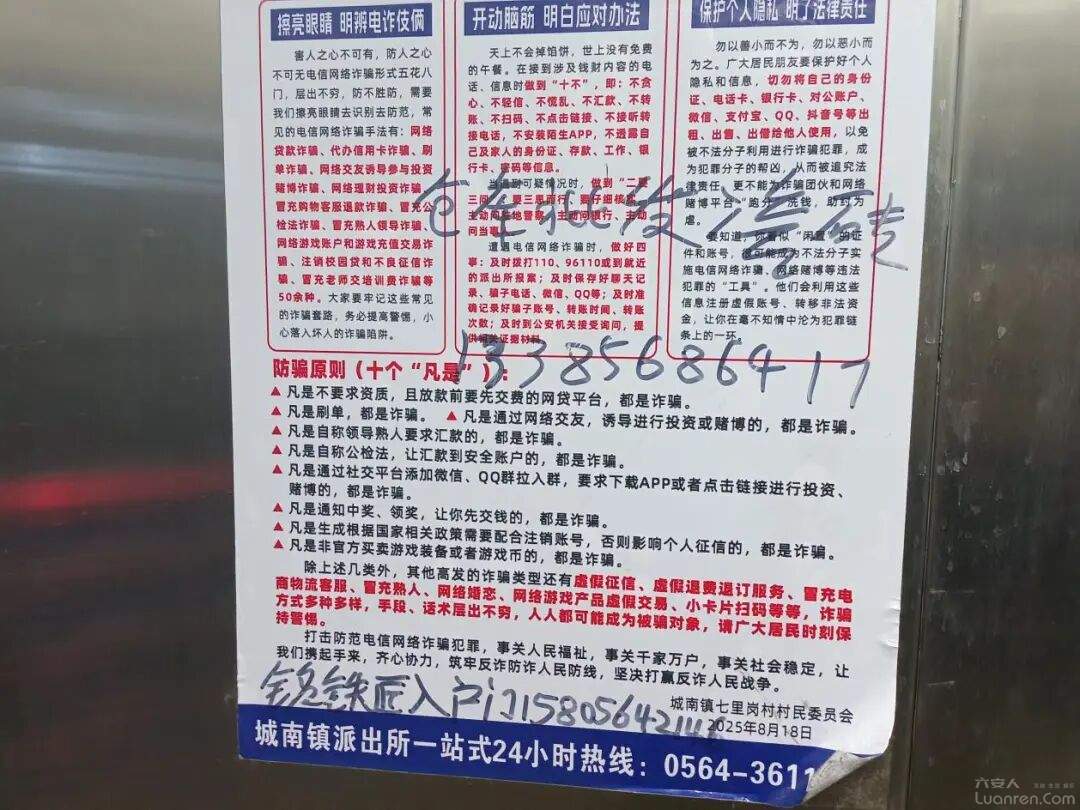 擦亮眼睛 明辨电诈伎俩
害人之心不可有，防人之心
不可无电信网络诈骗形式五花八
门，层出不穷，防不胜防，需要
我们擦亮眼睛去识别去防范，常
见的电信网络诈骗手法有：网络
贷款诈骗、代办信用卡诈骗、刷
单诈骗、网络交友诱导参与投资
赌博诈骗、网络理财投资诈骗、
冒充购物客服退款诈骗、冒充公
检法诈骗、冒充熟人领导诈骗、
网络游戏账户和游戏充值交易诈
骗、注销校园贷和不良征信诈
骗、冒充老师交培训费诈骗等等
50余种。大家要牢记这些常见
的诈骗套路，务必提高警惕，小
心落入坏人的诈骗陷阱。
开动脑筋 明白应对办法
天上不会掉馅饼，世上没有免费
的午餐。在接到涉及钱财内容的电
话、信息时做到“十不”，即：不贪
心、不轻信、不慌乱、不汇款、不转
账、不扫码、不点击链接、不接听转
接电话，不安装陌生APP，不透露自
己及家人的身份证、存款、工作、银
行卡、密码等信息。
当遇到可疑情况时，做到“二要
三问”，要三思而行，要仔细核实，
主动问当地警察，主动问银行、主动
问当事人。
遭遇电信网络诈骗时，做好四
事：及时拨打110、96110或到就近
的派出所报案；及时保存好聊天记
录、骗子电话、微信、QQ等；及时准
确记录好骗子账号、转账时间、转账
次数；及时到公安机关接受询问，提
供相关证据材料。
保护个人隐私 明了法律责任
勿以善小而不为，勿以恶小而
为之。广大居民朋友要保护好个人
隐私和信息，切勿将自己的身份
证、电话卡、银行卡、对公账户、
微信、支付宝、QQ、抖音号等出
租、出售、出借给他人使用，以免
被不法分子利用进行诈骗犯罪，成
为犯罪分子的帮凶，从而被追究法
律责任，更不能为诈骗团伙和网络
赌博平台“跑分”洗钱，助纣为
虐。
要知道，你看似“闲置”的证
件和账号，很可能成为不法分子实
施电信网络诈骗、网络赌博等违法
犯罪的“工具”。他们会利用这些
信息注册虚假账号、转移非法资
金，让你在毫不知情中沦为犯罪链
条上的一环。
仓库批发瓷砖
13385686417
防骗原则（十个“凡是”）：
▲ 凡是不要求资质，且放款前要先交费的网贷平台，都是诈骗。
▲ 凡是刷单，都是诈骗。 ▲ 凡是通过网络交友，诱导进行投资或赌博的，都是诈骗。
▲ 凡是自称领导熟人要求汇款的，都是诈骗。
▲ 凡是自称公检法，让汇款到安全账户的，都是诈骗。
▲ 凡是通过社交平台添加微信、QQ群拉入群，要求下载APP或者点击链接进行投资、
赌博的，都是诈骗。
▲ 凡是通知中奖、领奖，让你先交钱的，都是诈骗。
▲ 凡是生成根据国家相关政策需要配合注销账号，否则影响个人征信的，都是诈骗。
▲ 凡是非官方买卖游戏装备或者游戏币的，都是诈骗。
除上述几类外，其他高发的诈骗类型还有虚假征信、虚假退费退订服务、冒充电
商物流客服、冒充熟人、网络婚恋、网络游戏产品虚假交易、小卡片扫码等等，诈骗
方式多种多样，手段、话术层出不穷，人人都可能成为被骗对象，请广大居民时刻保
持警惕。
打击防范电信网络诈骗犯罪，事关人民福祉，事关千家万户，事关社会稳定，让
我们携起手来，齐心协力，筑牢反诈防诈人民防线，坚决打赢反诈人民战争。
城南镇七里岗村村民委员会
2025年8月18日
铁匠入户门
城南镇派出所一站式24小时热线：0564-3611
六安人
Luanren.Com